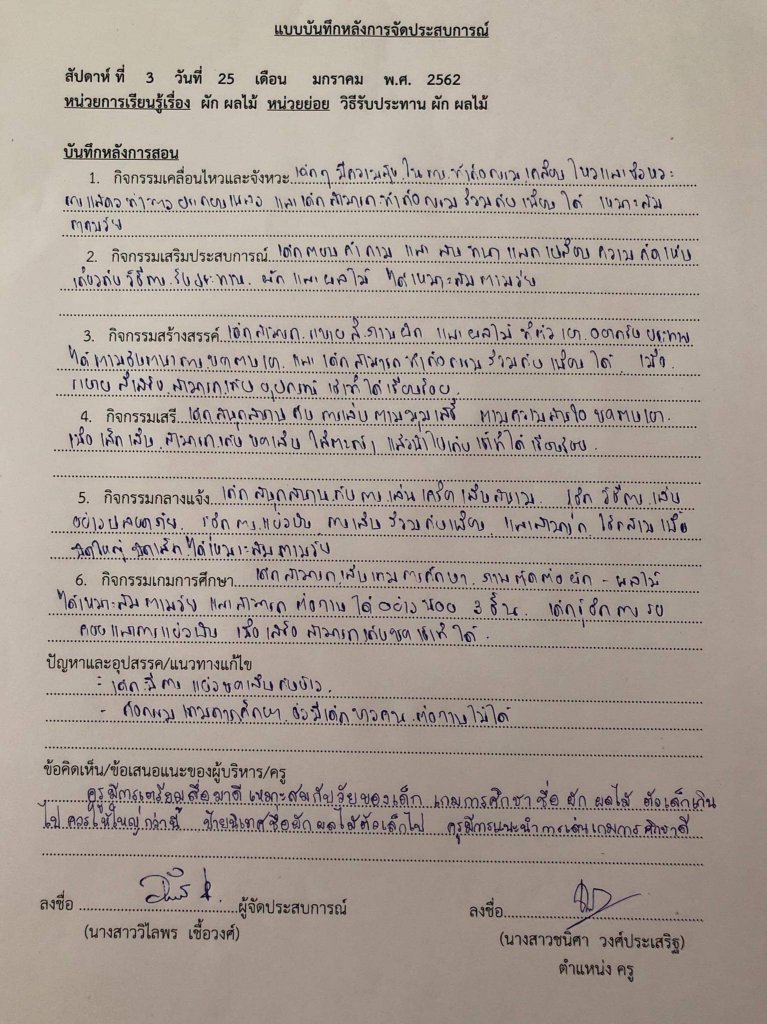 แบบบันทึกหลังการจัดประสบการณ์
สัปดาห์ ที่ 3 วันที่ 25 เดือน มกราคม พ.ศ. 2562
หน่วยการเรียนรู้เรื่อง ผัก ผลไม้ หน่วยย่อย วิธีรับประทาน ผัก ผลไม้
บันทึกหลังการสอน
1. กิจกรรมเคลื่อนไหวและจังหวะ เด็กๆ มีความสุข ในการทำกิจกรรม เคลื่อนไหวและจังหวะ
การแสดงท่าทาง ประกอบเพลง และเด็กสามารถทำกิจกรรมร่วมกับเพื่อนได้ เหมาะสม
ตามวัย
2. กิจกรรมเสริมประสบการณ์ เด็กตอบคำถาม และ สนทนา แลกเปลี่ยนความคิดเห็น
เกี่ยวกับวิธีการรับประทาน ผัก และผลไม้ ได้เหมาะสมตามวัย
3. กิจกรรมสร้างสรรค์ เด็กสามารถ ระบายสีภาพผัก และ ผลไม้ ที่ตัวเขา อยากรับประทาน
ได้ตามจินตนาการของเขา และ เด็กสามารถทำกิจกรรมร่วมกับเพื่อนได้ เมื่อ
ระบายสีเสร็จ สามารถเก็บอุปกรณ์ เข้าที่ได้เรียบร้อย
4. กิจกรรมเสรี เด็กสนุกสนานกับการเล่นตามมุมเสรี ตามความสนใจ ของเขา
เมื่อเลิกเล่น สามารถเก็บของเล่น ใส่ตะกร้า แล้วนำไปเก็บเข้าที่ได้เรียบร้อย
5. กิจกรรมกลางแจ้ง เด็กสนุกสนานกับการเล่นเครื่องเล่นสนาม รู้จักวิธีการเล่น
อย่างปลอดภัย รู้จักการแบ่งปัน การเล่นร่วมกับเพื่อน และสามารถใช้กล้ามเนื้อ
มัดใหญ่ มัดเล็ก ได้เหมาะสมตามวัย
6. กิจกรรมเกมการศึกษา เด็กสามารถเล่นเกมการศึกษา ภาพตัดต่อผัก - ผลไม้
ได้เหมาะสมตามวัย และสามารถต่อภาพได้อย่างน้อย 3 ชิ้น เด็กรู้จักการรอ
คอยและการแบ่งปัน เมื่อเสร็จ สามารถเก็บของเข้าที่ได้
ปัญหาและอุปสรรค/แนวทางแก้ไข
- เด็กมีการแย่งของเล่นกันบ้าง
- กิจกรรมเกมการศึกษา ยังมีเด็กบางคน ต่อภาพไม่ได้
ข้อคิดเห็น/ข้อเสนอแนะของผู้บริหาร/ครู
ครูมีการเตรียมสื่อมาดี เหมาะสมกับวัยของเด็ก เกมการศึกษาชื่อ ผัก ผลไม้ ตัวเล็กเกิน
ไป ควรให้ใหญ่กว่านี้ ป้ายนิเทศชื่อผัก ผลไม้ตัวเล็กไป ครูมีการแนะนำการเล่นเกมการศึกษาดี
ลงชื่อ ผู้จัดประสบการณ์
(นางสาววิไลพร เชื้อวงศ์)
ลงชื่อ
(นางสาวชนิศา วงศ์ประเสริฐ)
ตำแหน่ง ครู